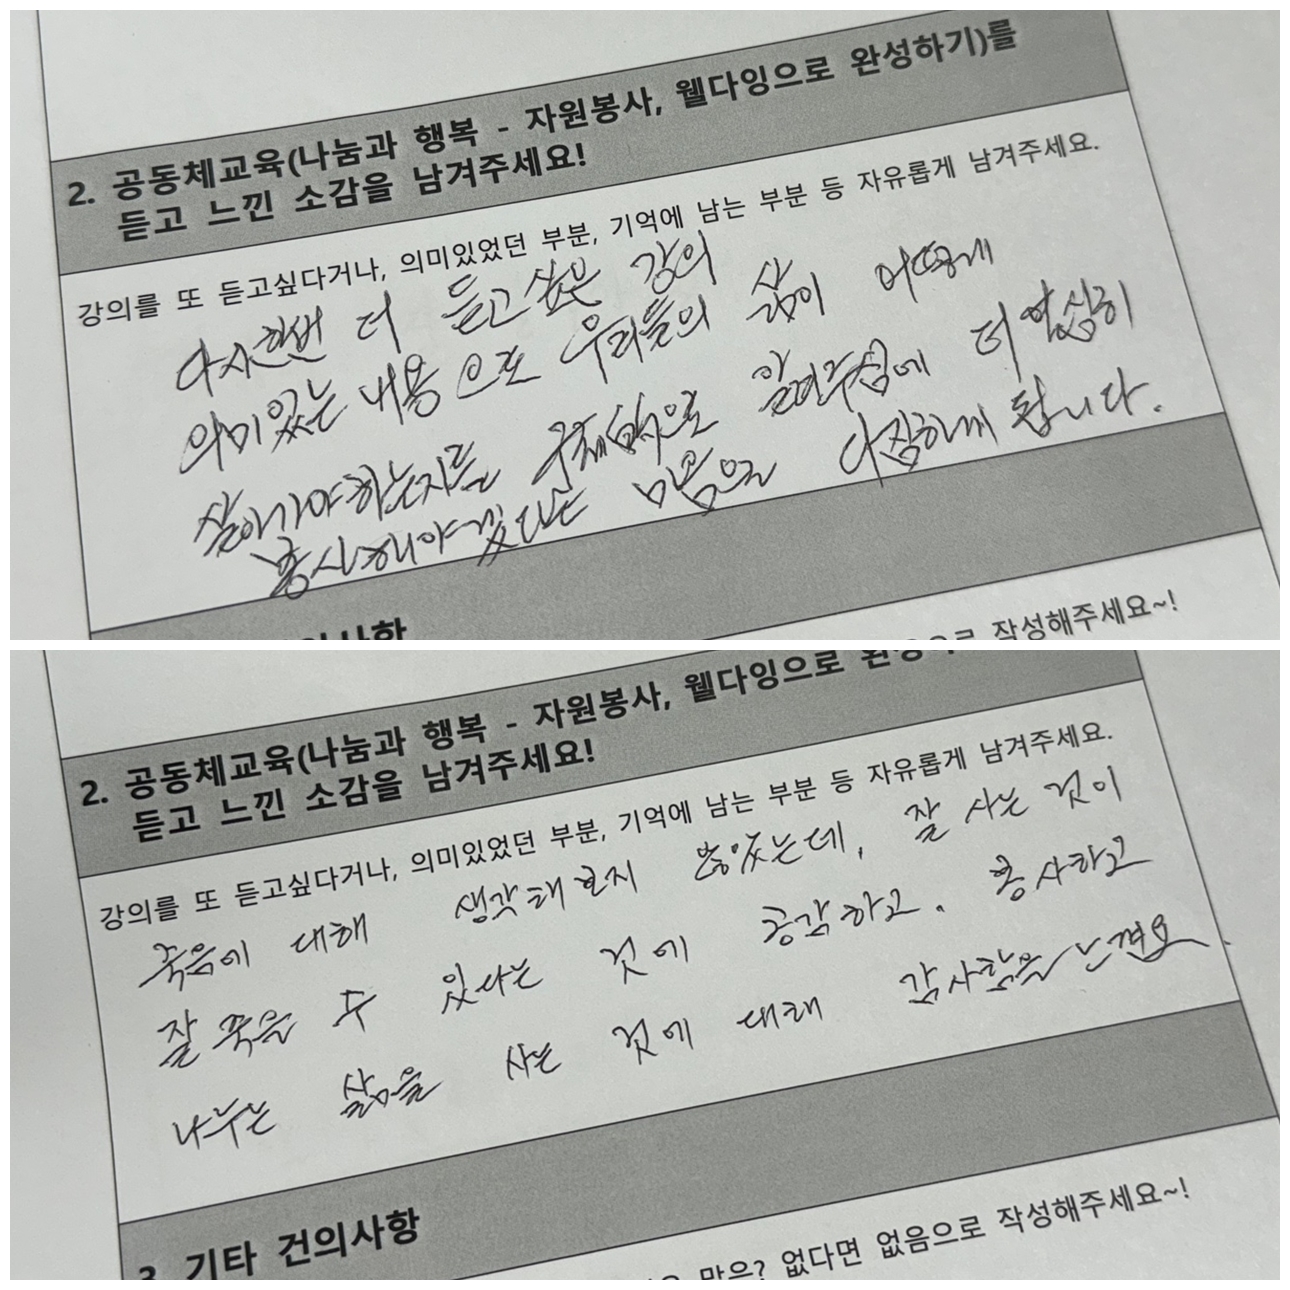 2. 공동체교육(나눔과 행복 - 자원봉사, 웰다잉으로 완성하기)를
듣고 느낀 소감을 남겨주세요!
강의를 또 듣고싶다거나, 의미있었던 부분, 기억에 남는 부분 등 자유롭게 남겨주세요.
다시한번 더 듣고 싶은 강의
의미있는 내용으로 우리들의 삶이 어떻게
살아가야하는지를 구체적으로 알려주심에 더 열심히
봉사해야겠다는 마음을 다짐하게 합니다.
의사항
으로 작성해주세요~!
2. 공동체교육(나눔과 행복 - 자원봉사, 웰다잉으로 완성하
듣고 느낀 소감을 남겨주세요!
강의를 또 듣고싶다거나, 의미있었던 부분, 기억에 남는 부분 등 자유롭게 남겨주세요.
죽음에 대해 생각해보지 않았는데, 잘 사는 것이
잘 죽을 수 있다는 것에 공감하고. 봉사하고
나누는 삶을 사는 것에 대해 감사함을 느껴요.
3. 기타 건의사항
말은? 없다면 없음으로 작성해주세요~!